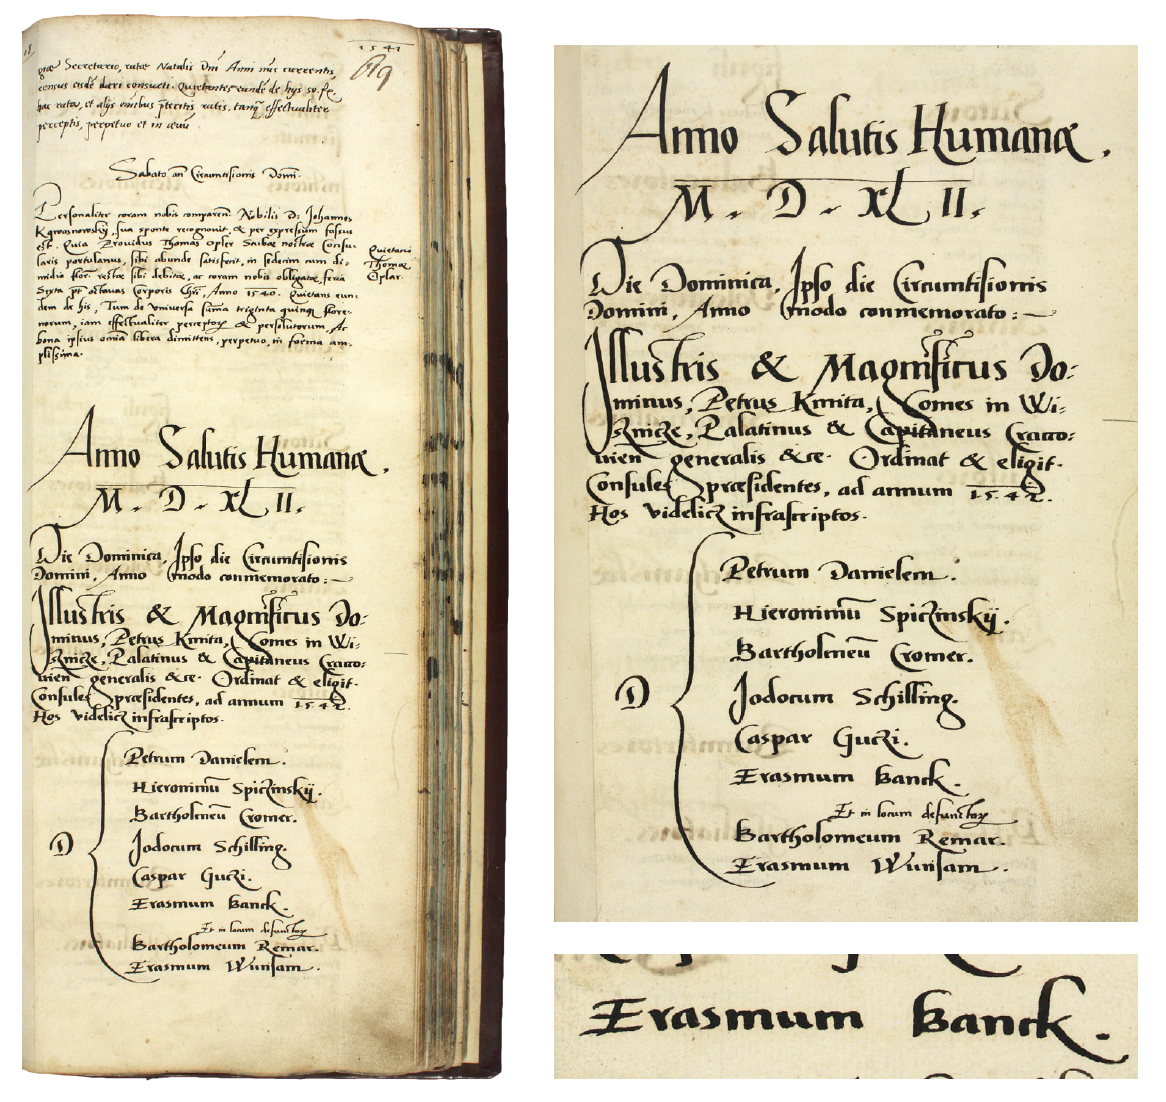 1541
619
græ Secretario, ratæ Natalis Dni Anni nũc currentis,
census eisdẽ dari consueti. Quietantes eundẽ de hijs 50. fl.
hac rata, et alijs omibus p̃teritis ratis, tanq̃ effectualiter
perceptis, perpetuo et in ævũ
Sabato an Circumcisionis Domi.
Personaliter coram nobis comparen. Nobilis D: Johannes
sua sponte recognovit, & per expressum fassus
est. Quia Providus Thomas Opler Stubæ nostræ Consu-
laris portulanus, sibi abunde satisfecit, in sedecim cum di-
midio flor. restæ sibi debitæ, ac coram nobis obligatæ, feria
Sexta pt octavas Corporis Chri, Anno 1540. Quietans eun-
dem de his, Tum de universa sũma triginta quinq̃ flore-
norum, iam effectualiter perceptoꝝ & persolutorum, Ar-
bona ipsius omia libera dimittens, perpetuo, in forma am-
plissima.
Quietacio
Thomæ
Oplar.
Anno Salutis Humanæ.
M. D. XL II.
Die Dominica, Ipso die Circumcisionis
Domini, Anno modo conmemorato:
Illustris & Magnificus Do-
minus, Petrus Kmita, Comes in Wi-
szmicze, Palatinus & Capitaneus Craco-
vien generalis &ce. Ordinat & eligit.
Consules Præsidentes, ad annum 1542.
Hos videlicz infrascriptos.
Petrum Danielem.
Hieronimũ Spiczinskij.
Bartholemeũ Cromer.
D
Jodocum Schilling.
Caspar Guczi.
Erasmum Banck.
Et in locum defunctoꝝ
Bartholomeum Remar.
Erasmum Wunsam.
Anno Salutis Humanæ.
M. D. XL II.
Die Dominica, Ipso die Circumcisionis
Domini, Anno modo conmemorato:
Illustris & Magnificus Do-
minus, Petrus Kmita, Comes in Wi-
szmicze, Palatinus & Capitaneus Craco-
vien generalis &ce. Ordinat & eligit.
Consules Præsidentes, ad annum 1542.
Hos videlicz infrascriptos.
Petrum Danielem.
Hieronimũ Spiczinskij.
Bartholemeũ Cromer.
D
Jodocum Schilling.
Caspar Guczi.
Erasmum Banck.
Et in locum defunctoꝝ
Bartholomeum Remar.
Erasmum Wunsam.
Erasmum Banck.